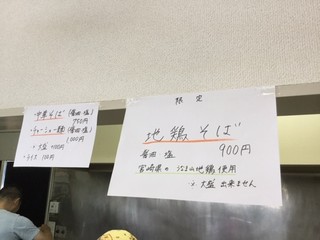 中華そば(醤油 塩)
750円
・チャーシュー麺(醤油 塩)
1000円
・大盛 100円
・ライス 100円
限定
地鶏そば
醤油 塩 900円
宮崎県の 地鶏使用
※大盛 出来ません